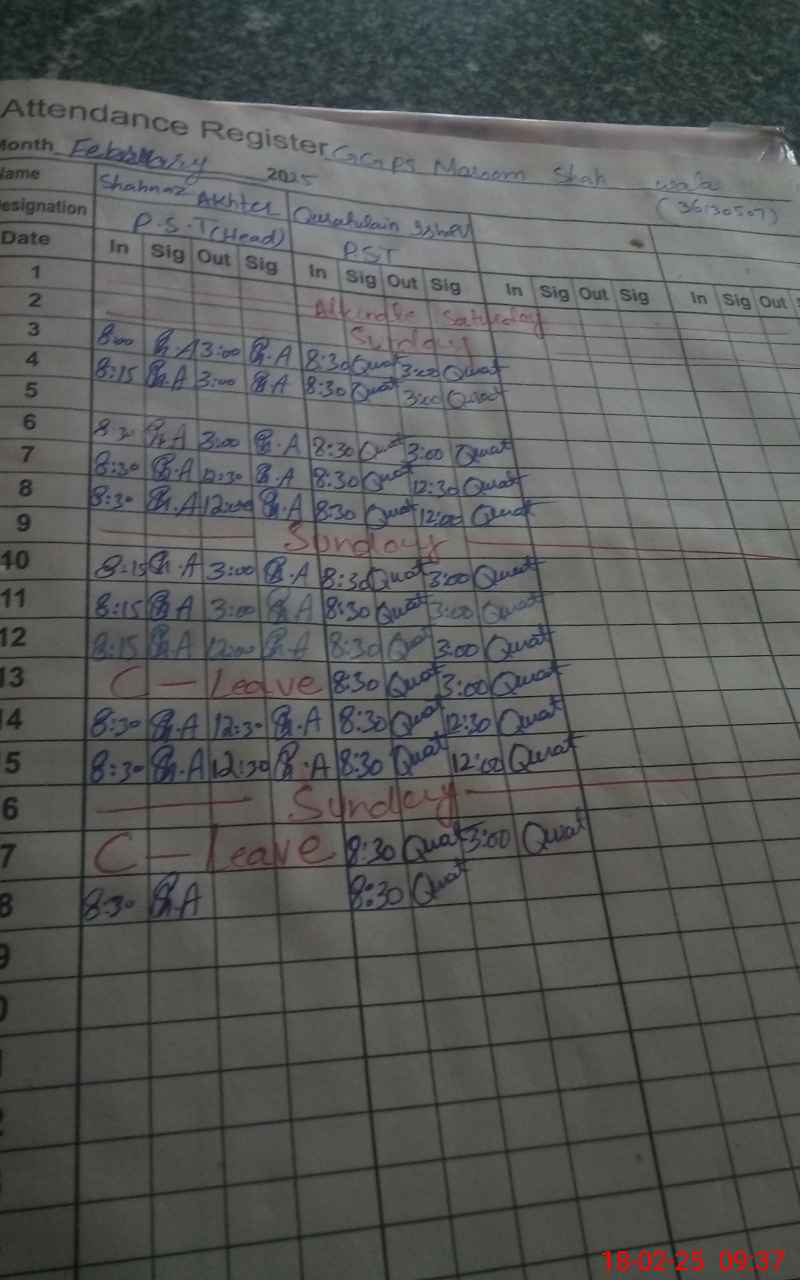 Attendance Register GGPS Masoom Shah wala
Month February 2025 (36130507)
Name Shahnaz Akhter
Designation P.S.T (Head) PST
Date In Sig Out Sig In Sig Out Sig In Sig Out Sig In Sig Out
1 Saturday
2 Sunday
3 8:00 Sh.A 3:00 Sh.A 8:30 Quat 3:00 Quat
4 8:15 Sh.A 3:00 Sh.A 8:30 Quat 3:00 Quat
5
6 8:30 Sh.A 3:00 Sh.A 8:30 Quat 3:00 Quat
7 8:30 Sh.A 12:30 Sh.A 8:30 Quat 12:30 Quat
8 8:30 Sh.A 12:00 Sh.A 8:30 Quat 12:00 Quat
9 Sunday
10 8:15 Sh.A 3:00 Sh.A 8:30 Quat 3:00 Quat
11 8:15 Sh.A 3:00 Sh.A 8:30 Quat 3:00 Quat
12 8:15 Sh.A 12:00 Sh.A 8:30 Quat 3:00 Quat
13 C - Leave 8:30 Quat 3:00 Quat
4 8:30 Sh.A 12:30 Sh.A 8:30 Quat 12:30 Quat
5 8:30 Sh.A 12:30 Sh.A 8:30 Quat 12:00 Quat
6 Sunday
7 C - Leave 8:30 Quat 3:00 Quat
8 8:30 Sh.A 8:30 Quat
9
0
18-02-25 09:37